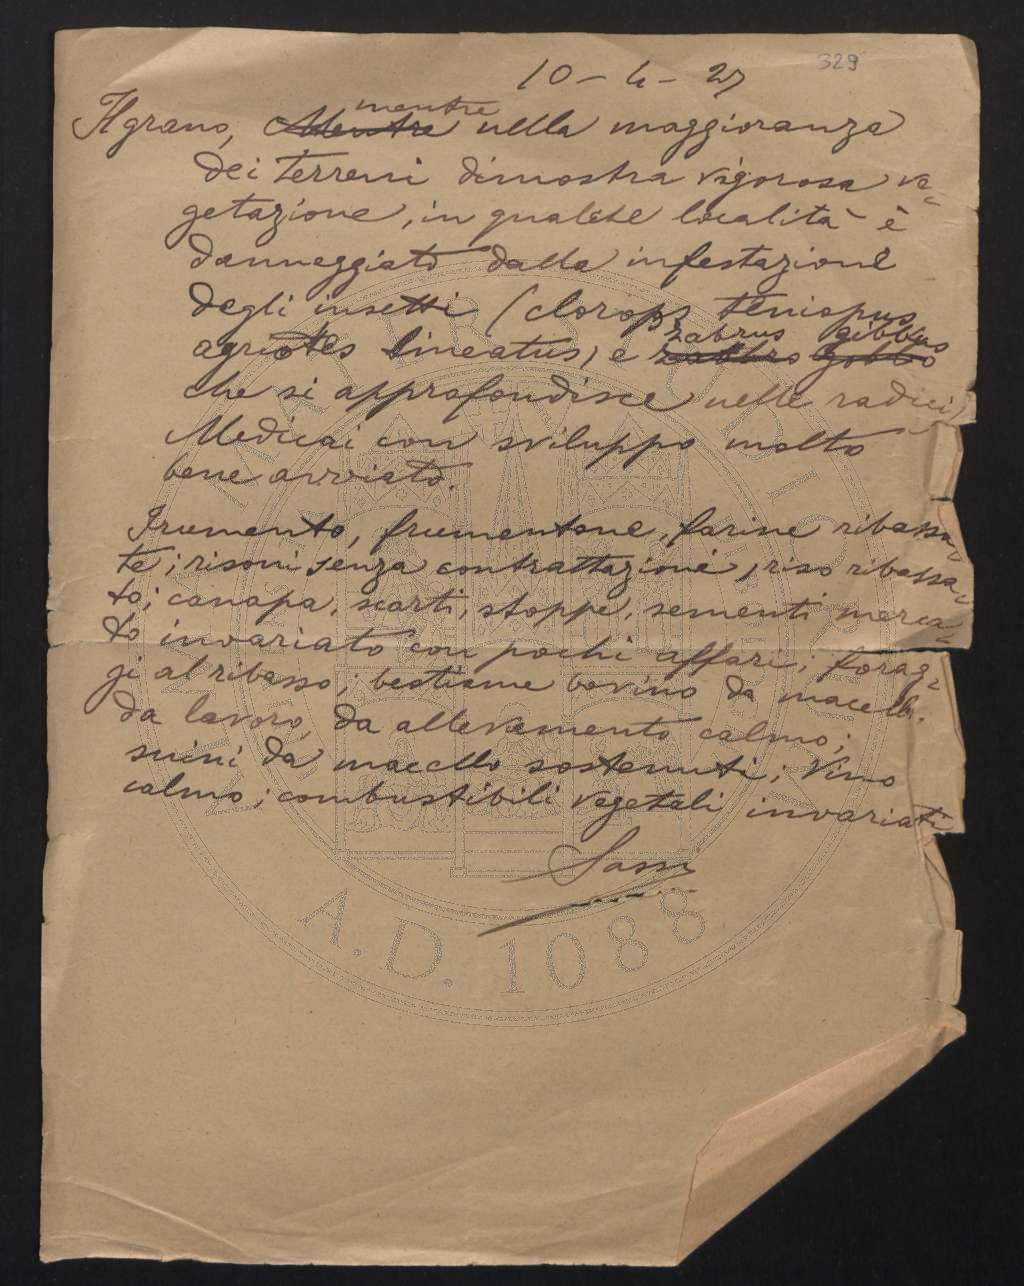 329
10 - 4 - 27
Il grano, Mentre mentre nella maggioranza
dei terreni dimostra vigorosa ve-
getazione, in qualche località è
danneggiato dalla infestazione
degli insetti (clorops teniopus
agriotes lineatus, e zabbro gobbo zabrus gibbus
che si approfondisce nelle radici)
Medicai con sviluppo molto
bene avviato.
Frumento, frumentone, farine ribassa-
te; risoni senza contrattazione, riso ribassa-
to; canapa, scarti, stoppe, sementi merca-
to invariato con pochi affari; forag-
gi al ribasso; bestiame bovino da macello.
da lavoro, da allevamento calmo;
suini da macello sostenuti; Vino
calmo; combustibili vegetali invariati
Sassi
A.D. 1088